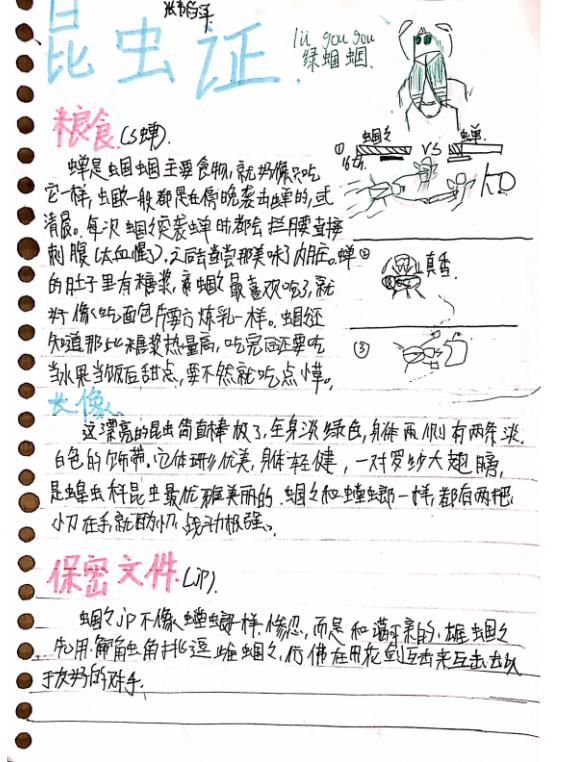 昆虫证.
lǜ guo guo
绿蝈蝈.
粮食.(S蝉).
蝉是蝈蝈主要食物,就好像只吃
它一样,虫歌一般都是在傍晚袭击蝉的,或
清晨。每次蝈々突袭蝉时都会拦腰直接
刺腹(太血腥),之后尝尝那美味了内脏。蝉
的肚子里有糖浆,蝈々最喜欢吃了,就
好像吃面包片要方炼乳一样。蝈
知道那比糖浆热量高,吃完后还要吃
当水果当饭后甜点,要不然就吃点。
蝈々 VS 蝉
①
KO
②
真香
③
长像.
这漂亮的昆虫简直棒极了,全身淡绿色,身体两侧有两条淡
白色的饰带。它体形优美,身体轻健,一对罗纱大翅膀,
是蝗虫科昆虫最优雅美丽的.蝈々和螳螂一样,都有两把
小刀在手,就酷切,战动极强。
保密文件.(JP).
蝈々JP不像螳螂一样惨忍,而是和谐可亲的.雄蝈々
先用触角挑逗雌蝈々,仿佛在用花剑互击来互击击以
友好的对手.